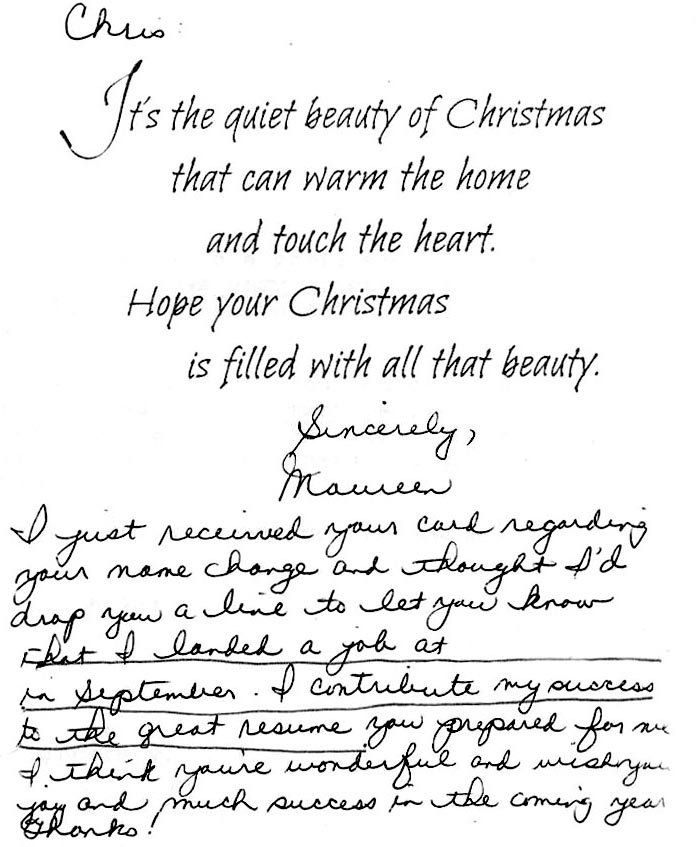 Chris:
It's the quiet beauty of Christmas
that can warm the home
and touch the heart.
Hope your Christmas
is filled with all that beauty.
Sincerely,
Maureen
I just received your card regarding
your name change and thought I'd
drop you a line to let you know
that I landed a job at
in September. I contribute my success
to the great resume you prepared for me
I think you're wonderful and wish you
joy and much success in the coming year
Thanks!